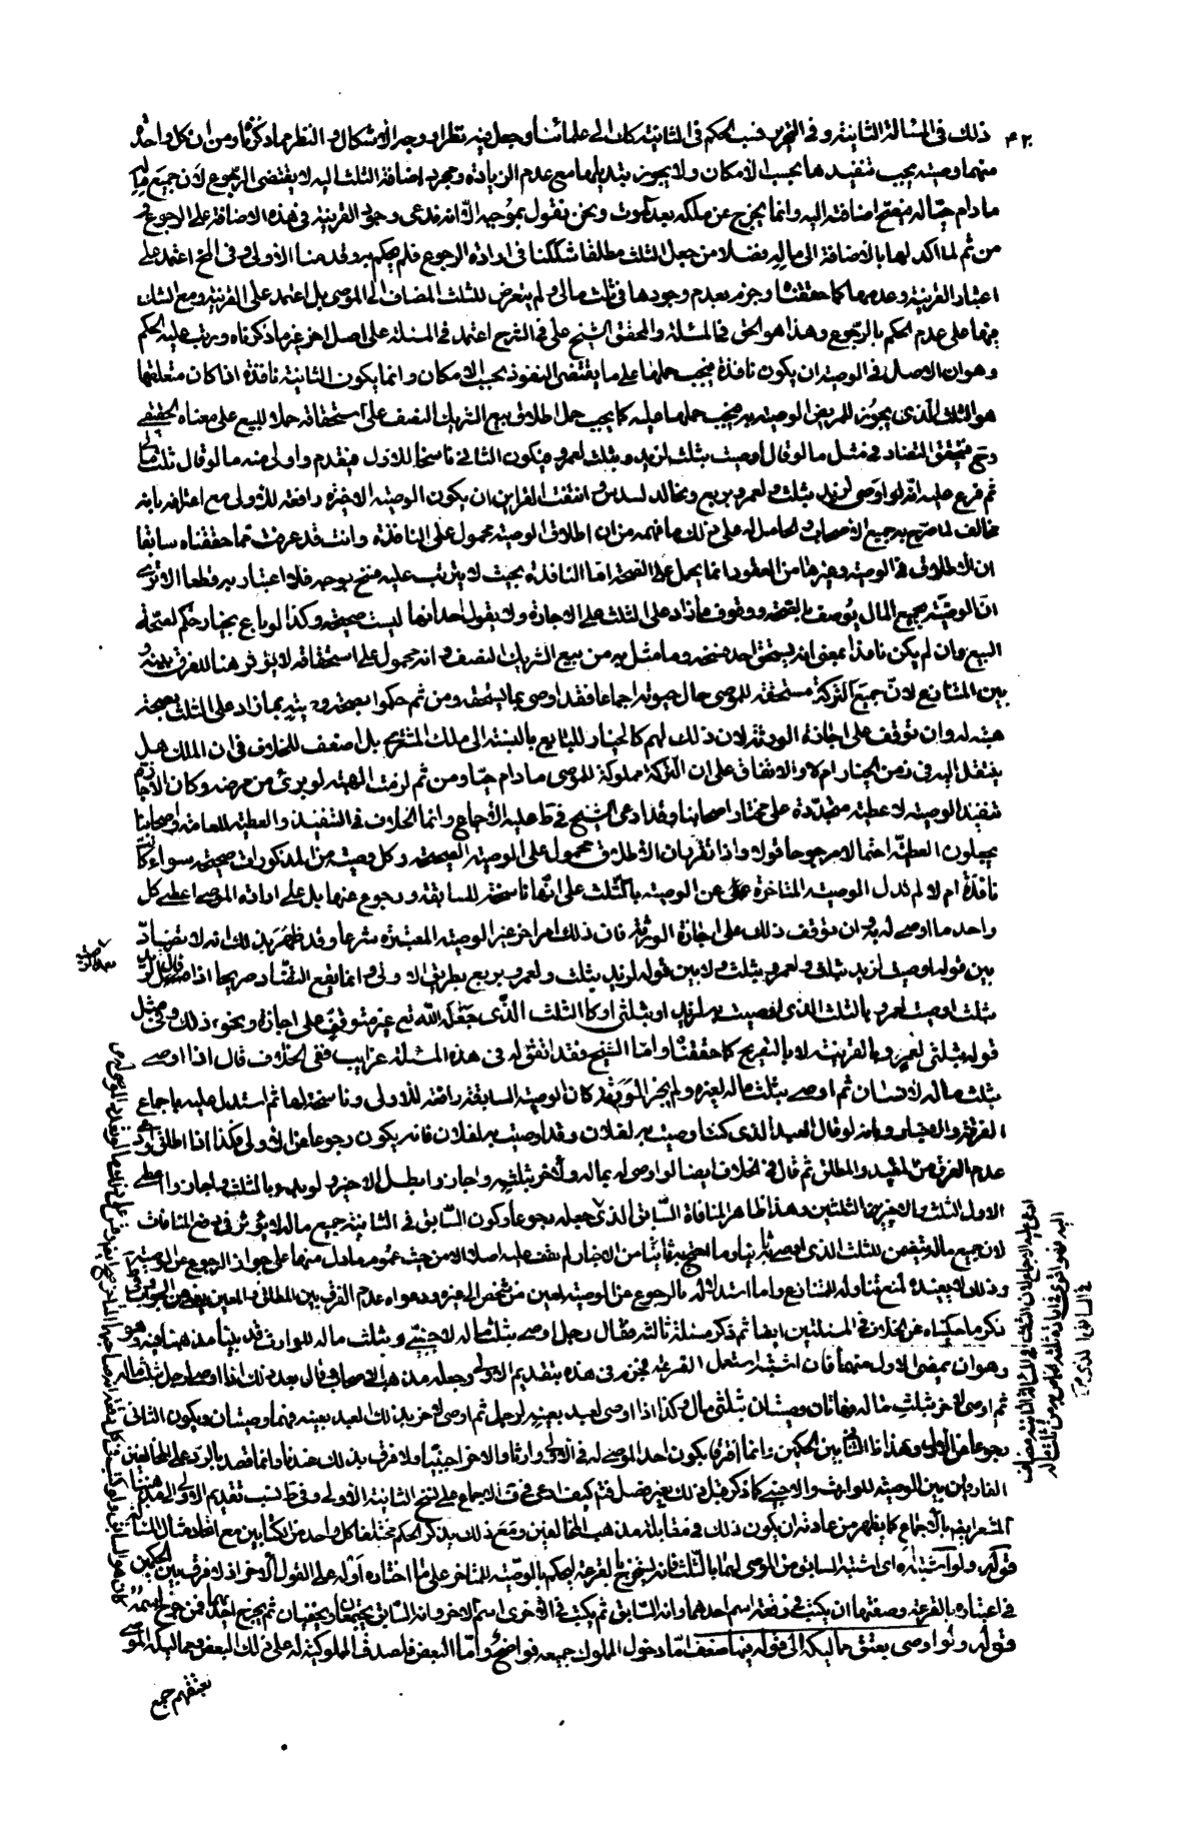 ذلك فى المسألة الثانية وفى التحرير نسب الحكم فى الثانية كان الى علمائنا وجعل فيه نظرا ووجه الاشكال والنظر مما ذكرناه ومن ان كل واحدة
منهما وصيته يجب تنفيذها بحسب الامكان ولا يجوز تبديلها مع عدم الزيادة ومجرد اضافة الثلث اليه لا يقتضى الرجوع لان جميع ماله
ما دام حيا له يصح اضافته اليه وانما يخرج عن ملكه بعد الموت ونحن نقول بموجبه الا انه قد عى وجود القرينة فى هذه الاضافة على الرجوع
من ثم لما اكد لها بالاضافة الى ماله فضلا من جعل الثلث مطلقا شككنا فى ارادة الرجوع فلم يحكم به وقد منا الاولى وفى المخ اعتمد على
اعتبار القرينة وعدمها كما حققناه وجزم بعدم وجودها فى ثلث مالى ولم يتعرض للثلث المضاف الى الموصى بل اعتمد على القرينة ومع الشك
فيها على عدم الحكم بالرجوع وهذا هو الحق فى المسئلة والمحقق الشيخ على فى الشرح اعتمد فى المسئلة على اصل اخر غير ما ذكرناه ورتب عليه الحكم
وهو ان الاصل فى الوصية ان يكون نافذة فيجب حملها على ما يقتضى النفوذ بحسب الامكان وانما يكون الثانية نافذة اذا كان متعلقها
هو الثلث الذى يجوز للمريض الوصية به فيجب حملها عليه كما يجب حمل اطلاق بيع الشريك النصف على استحقاقه حملا للبيع على معناه الحقيقى
وح فيتحقق التضاد فى مثل ما لو قال اوصيت بثلث لزيد وبثلث لعمرو فيكون الثانى ناسخا للاول فيقدم واولى منه ما لو قال ثلث مالى
ثم فرع عليه انه لو اوصى لزيد بثلث ولعمرو بربع ولخالد بسدس وانتفت القراين ان يكون الوصية الاخيرة رافعة للاولى مع اعترافه بانه
مخالف لما صرح به جميع الاصحاب والحامل له على ذلك ما فهمه من ان اطلاق الوصية محمول على النافذة وانت قد عرفت مما حققناه سابقا
ان الاطلاق فى الوصية وغيرها من العقود انما يحمل على الصحة اما النافذة بحيث لا يترتب عليه فسخ بوجه فلا اعتبار به قطعا الا ترى
ان الوصية بجميع المال يوصف بالصحة ووقوف ما زاد على الثلث على الاجازة ولا يقول احد انها ليست صحيحة وكذا لو باع بخيار حكم لصحة
البيع وان لم يكن نافذا بمعنى انه يستحق احد فسخه وما مثل به من بيع الشريك النصف وانه محمول على استحقاقه لا يؤثر هنا للفرق بينه و
بين المتنازع لان جميع التركة مستحقة للموصى حال حيوته اجماعا فقد اوصى بما يستحقه ومن ثم حكموا بصحة وصيته بما زاد على الثلث وبصحة
هبته له وان توقف على اجازة الورثة لان ذلك لهم كالخيار للبايع بالنسبة الى ملك المشترى بل اضعف للخلاف فى ان الملك هل
ينتقل اليه فى زمن الخيار ام لا والاتفاق على ان التركة مملوكة للموصى ما دام حيا ومن ثم لزمت الهبة لو برئ من مرضه وكان الاجازة
تنفيذ الوصية لا عطية متجددة على مختار اصحابنا وقد ادعى الشيخ فى ط عليه الاجماع وانما الخلاف فى التنفيذ والعطية للعامة واصحابنا
يجعلون العطية احتمالا مرجوحا او قولا واذا تقرر ان الاطلاق محمول على الوصية الصحيحة وكل وصية من المذكورات صحيحة سواء كانت
نافذة ام لا لم تدل الوصية المتاخرة عن الوصية بالثلث على انها ناسخة للسابقة ورجوع عنها بل على ارادة الموصى اعطاء كل
واحد ما اوصى له به وان توقف ذلك على اجازة الورثة فان ذلك امر اخر غير الوصية المعتبرة شرعا وقد ظهر بذلك انه لا تضاد
بين قوله اوصيت لزيد بثلث ولعمرو بثلث ولا بين قوله لزيد بثلث ولعمرو بربع بطريق الاولى وانما يقع التضاد صريحا اذا قال
بثلث اوصيت لعمرو بالثلث الذى اوصيت به لزيد او بثلثى او كالثلث الذى جعله الله تع غير متوقف على اجازة ونحو ذلك وفى مثل
قوله بثلثى لعمرو بالقرينة لا بالتصريح كما حققناه واما الشيخ فقد اتفق له فى هذه المسئلة غرايب ففى الخلاف قال اذا اوصى
بثلث ماله لانسان ثم اوصى بثلث ماله لغيره ولم يجز الورثة كان الوصية السابقة رافعة للاولى وناسخة لها ثم استدل عليه باجماع
الفرقة والاخبار وبانه لو قال العبد الذى كنت اوصيت به لفلان وقد اوصيت به لفلان فانه يكون رجوعا عن الاولى فكذا اذا اطلق
عدم الفرق بين المقيد والمطلق ثم قال فى الخلاف ايضا لو اوصى له بماله ولاخر بثلثه واجازوا بطل الاخير ولو بدء بالمثلث واجازوا اعطى
الاول الثلث والاخير الثلثين وهذا ظاهر المنافاة السابق الذى جعله رجوعا وكون السابق فى الثانية جميع ماله لا يؤثر فى دفع المنافات
لان جميع ماله يتضمن للثلث الذى اوصى به ثانيا وما احتج به ثانيا من الاخبار لم نقف عليه اصلا الا من حيث عموم ما دل منها على جواز الرجوع عن الوصية
وذلك لا يفيده لمنع تناوله للمتنازع واما استدلاله بالرجوع عن الوصية لمعين من شخص الى غيره ودعواه عدم الفرق بين المطلق والمعين
ذكر ما حكيناه عن الخلاف فى المسئلتين ايضا ثم ذكر مسئلة ثالثة فقال رجل اوصى بثلث ماله لاجنبى وبثلث ماله للوارث قد بينا مذهبنا فيه وهو
وهو ان يمضى الاول منهما فان اشتبه استعمل القرعة فجزم فى هذه بتقديم الاولى وجعله مذهب الاصحاب وقال بعد ذلك اذا اوصى لرجل بثلث ماله
ثم اوصى لاخر بثلث ماله فهاتان وصيتان بثلثى مال وكذا اذا اوصى لعبد بعينه لرجل ثم اوصى لاخر بذلك العبد بعينه فهما وصيتان ويكون الثانى
رجوعا عن الاول وهذا ظاهر التنافى بين الحكمين وانما افترقا بكون احد الموصى له فى الاولى وارثا والاخر اجنبيا ولا فرق بذلك عندنا وانما قصد بالرد على المخالفين
الفارقين بين الوصية للوارث والاجنبى كما ذكر قبل ذلك بغير فصل
المتعرايفه بالاجماع كما يظهر من عادته ان يكون ذلك فى مقابلة مذهب المخالفين ومع ذلك يذكر الحكم مختلفا كل واحد من الكتابين مع اتحاد مثال المسألة
قوله ولو اشتبه اه اى اشتبه السابق من الموصى لهما بالثلث فانه يستخرج بالقرعة ليحكم بالوصية للمتاخر على ما اختاره او له على القول الاخر اذ لا فرق بين الحكمين
فى اعتباره بالقرعة وصفتها ان يكتب فى رقعة اسم احدهما وانه السابق ثم يكتب فى الاخرى اسم الاخر وانه السابق يجتمعان ويخفيان ثم يخرج احديهما فمن خرج اسمه
قوله ولو اوصى بعتق مماليكه الى قوله فيها ضعف اما دخول المملوك جميعه فواضح واما البعض فلصدق المملوكية له على ذلك البعض ومماليكه الموصى
بعتقهم جمع